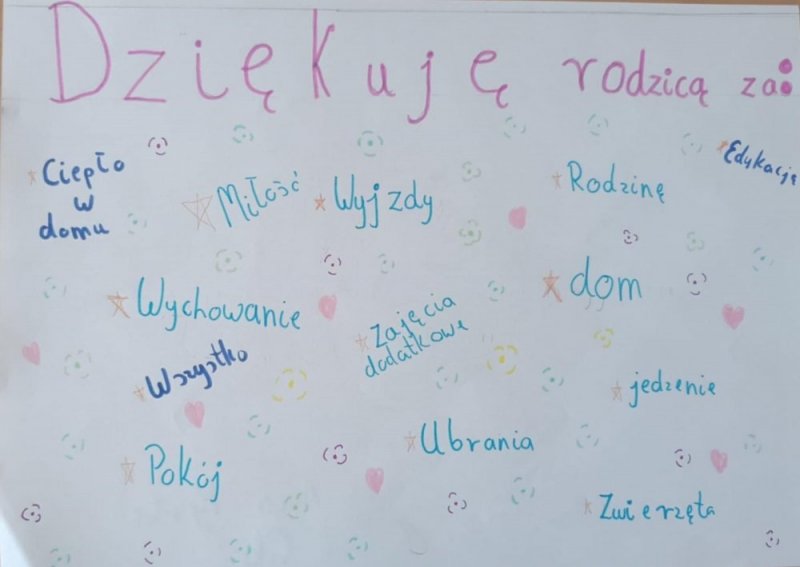 Dziękuję rodzicą za:
Ciepło
w
domu
Miłość
Wyjzdy
Rodzinę
Edukację
Wychowanie
Zajęcia
dodatkowe
dom
Wszystko
jedzenie
Pokój
Ubrania
Zwierzęta